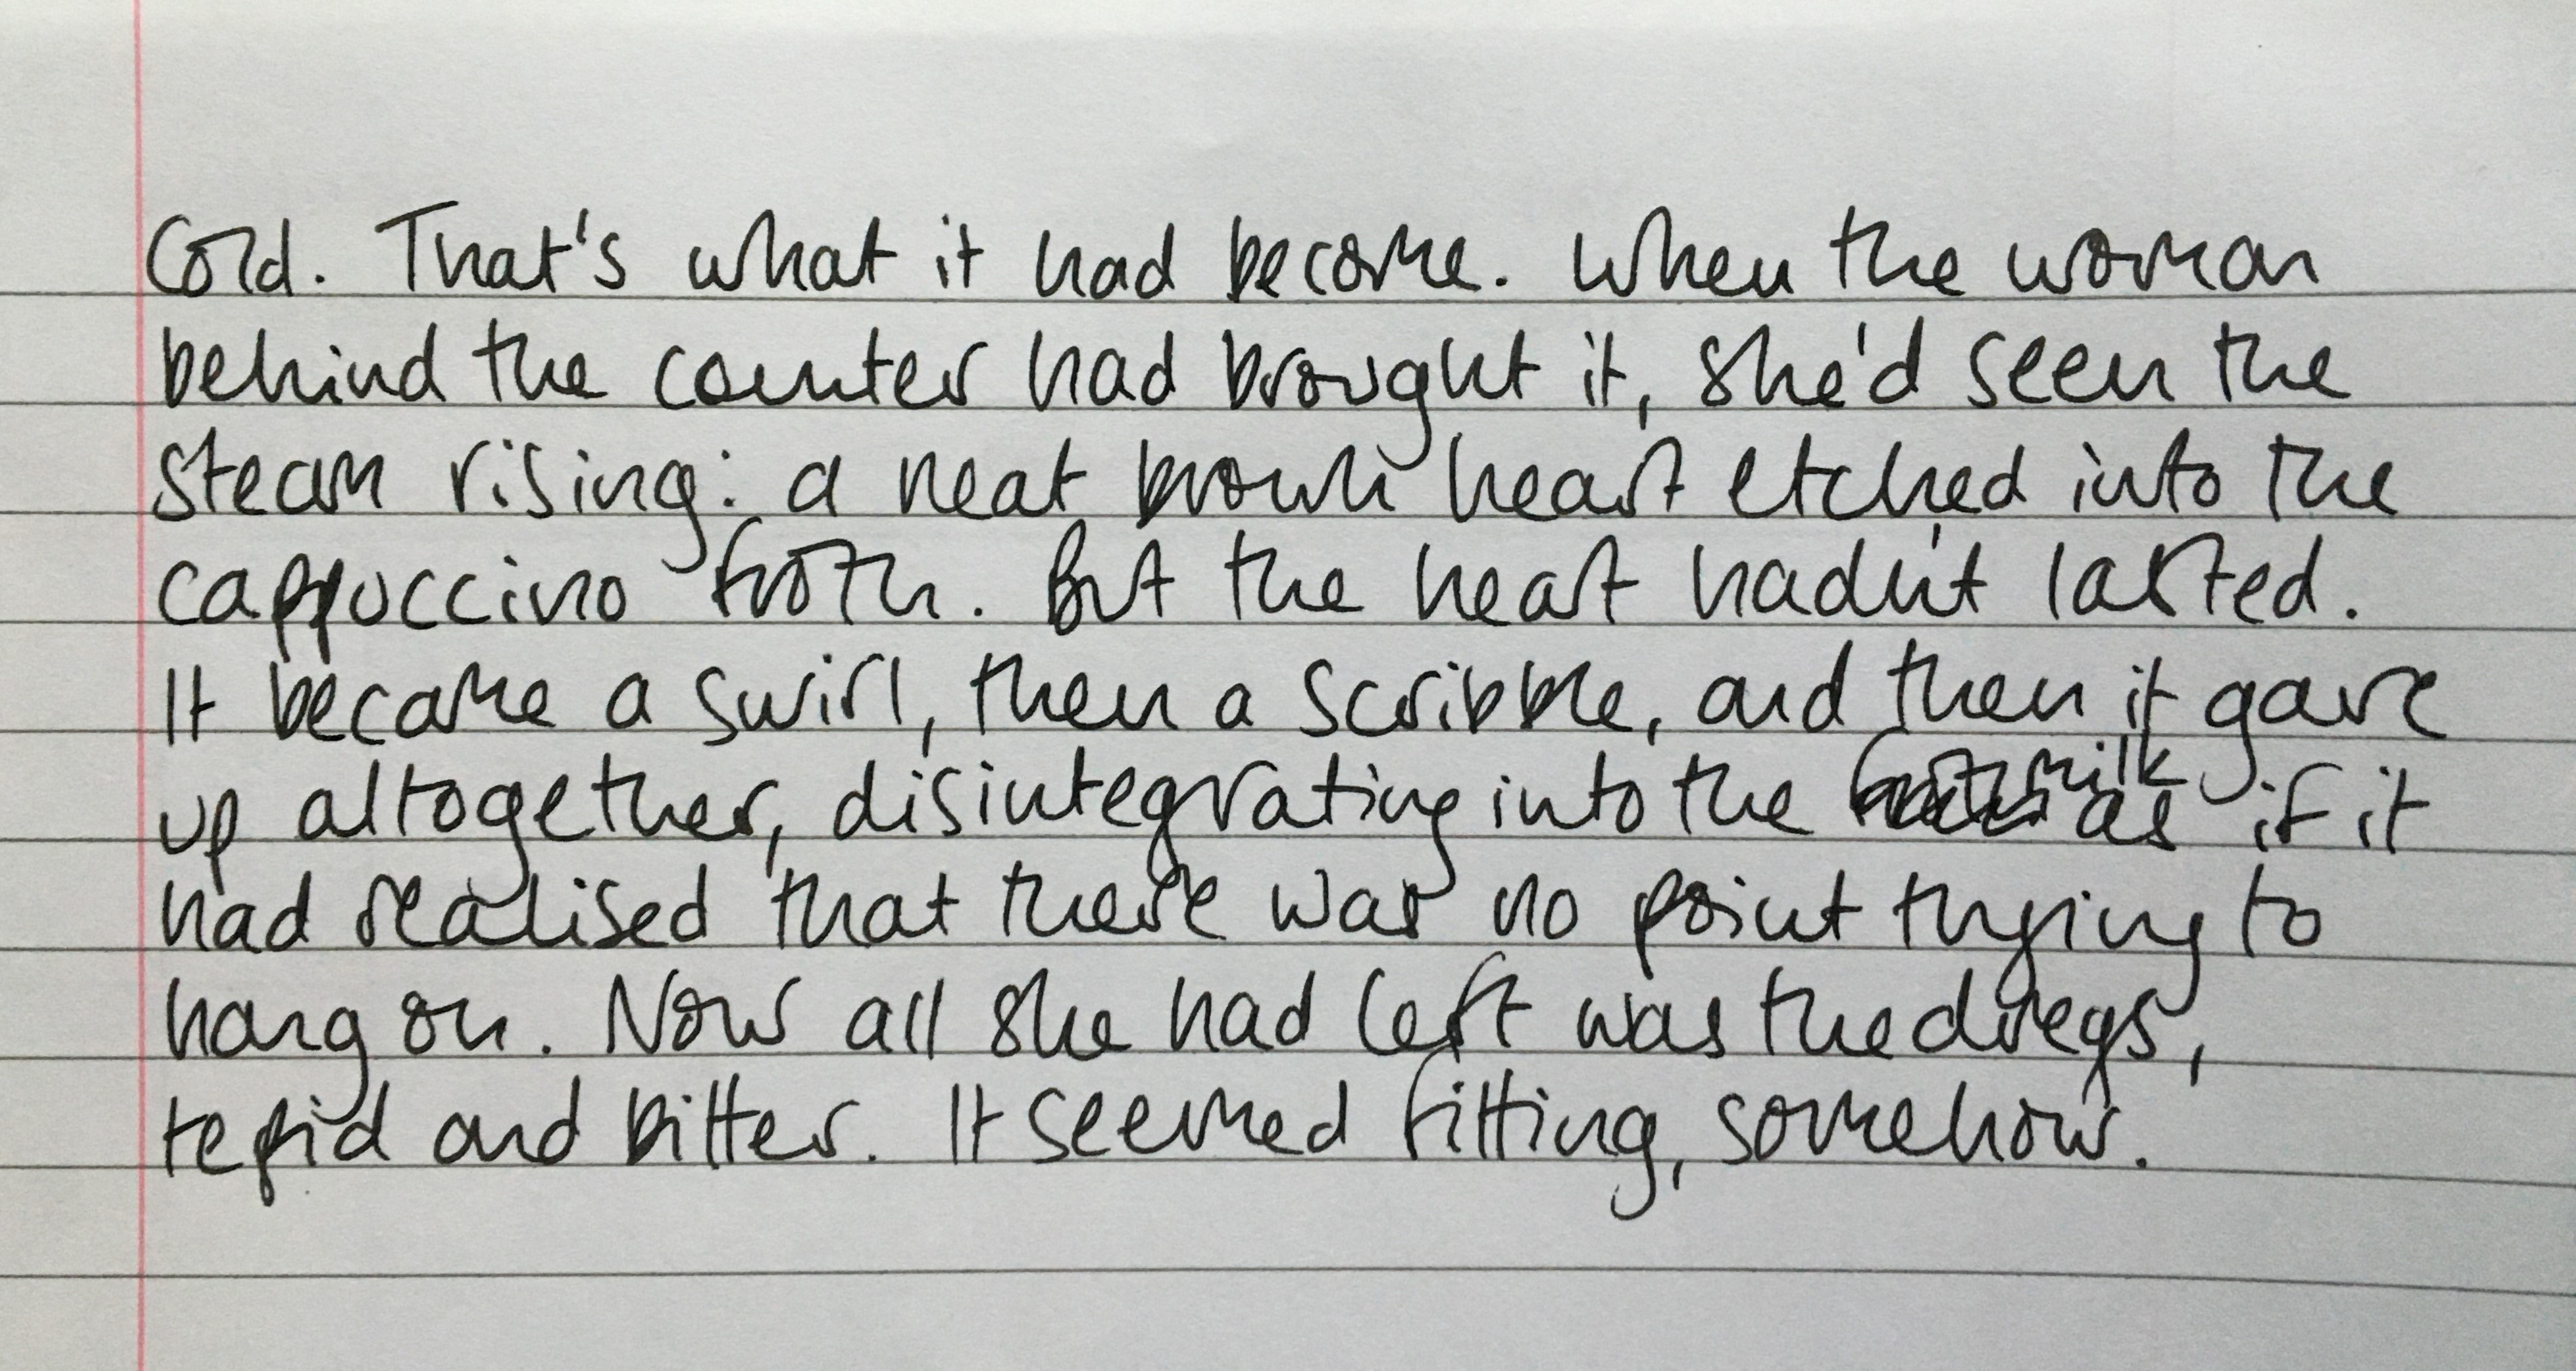 Cold. That's what it had become. When the woman
behind the counter had brought it, she'd seen the
steam rising: a neat brown heart etched into the
cappuccino froth. But the heart hadn't lasted.
It became a swirl, then a scribble, and then it gave
up altogether, disintegrating into the milk as if it
had realised that there was no point trying to
hang on. Now all she had left was the dregs,
tepid and bitter. It seemed fitting, somehow.